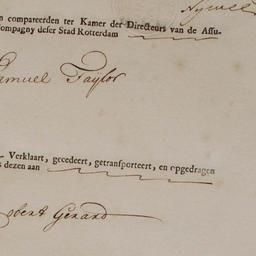 n compareerden ter Kamer der Directeurs van de Assu-
ompagny deser Stad Rotterdam
amuel Taylor
Verklaart, gecedeert, getransporteert, en opgedragen
s dezen aan
obert Gerard